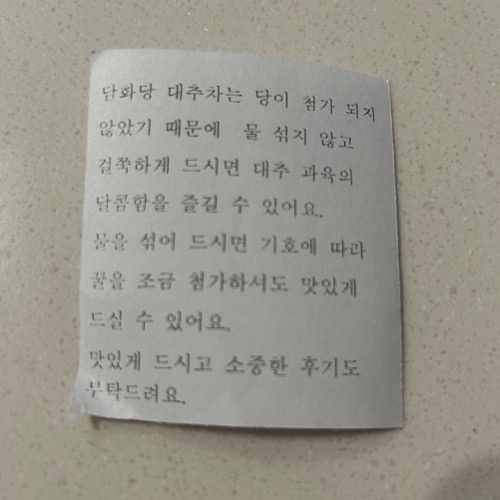 담화당 대추차는 당이 첨가 되지
않았기 때문에 물 섞지 않고
걸쭉하게 드시면 대추 과육의
달콤함을 즐길 수 있어요.
물을 섞어 드시면 기호에 따라
꿀을 조금 첨가하셔도 맛있게
드실 수 있어요.
맛있게 드시고 소중한 후기도
부탁드려요.